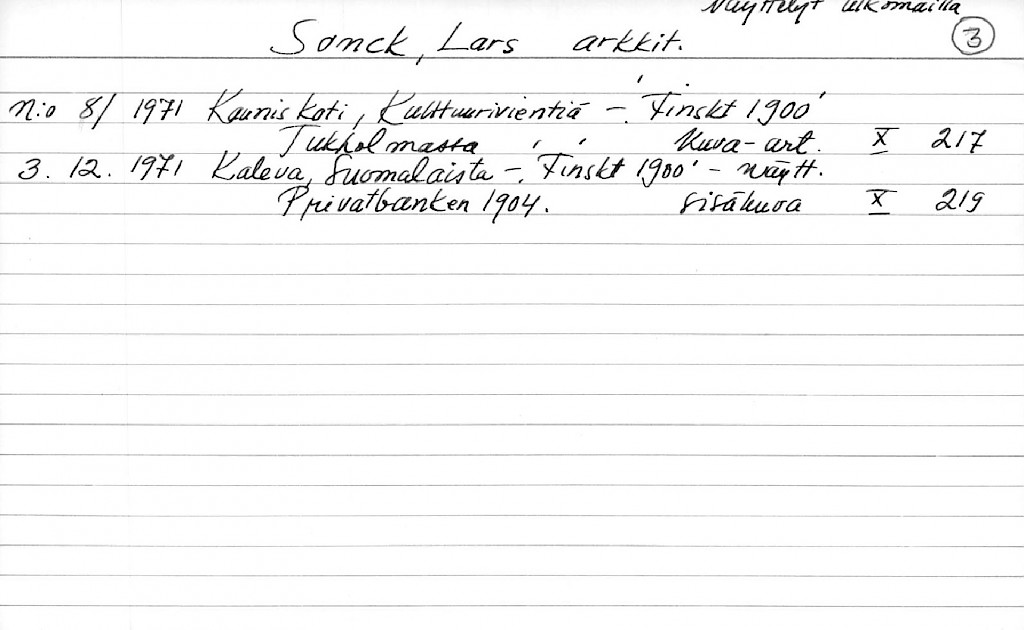 Näyttelyt ulkomailla
Sonck, Lars arkkit. 3
N:o 8/ 1971 Kaunis Koti, Kulttuurivientiä - 'Finskt 1900'
Tukholmassa Kuva-art. X 217
3. 12. 1971 Kaleva, Suomalaista - 'Finskt 1900' - näytt.
Privatbanken 1904. sisäkuva X 219